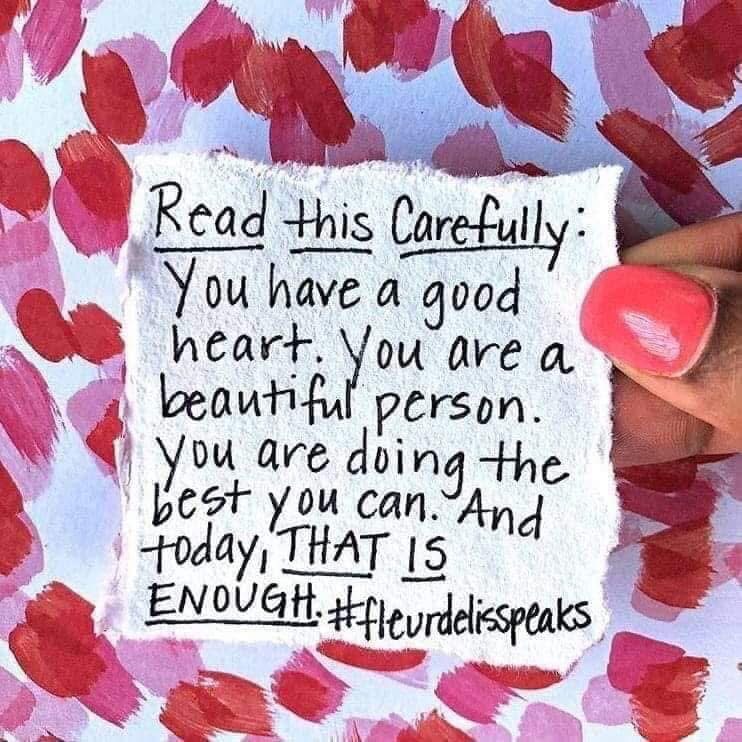 Read this Carefully:
You have a good
heart. You are a
beautiful person.
You are doing the
best you can. And
today, THAT IS
ENOUGH. #fleurdelisspeaks